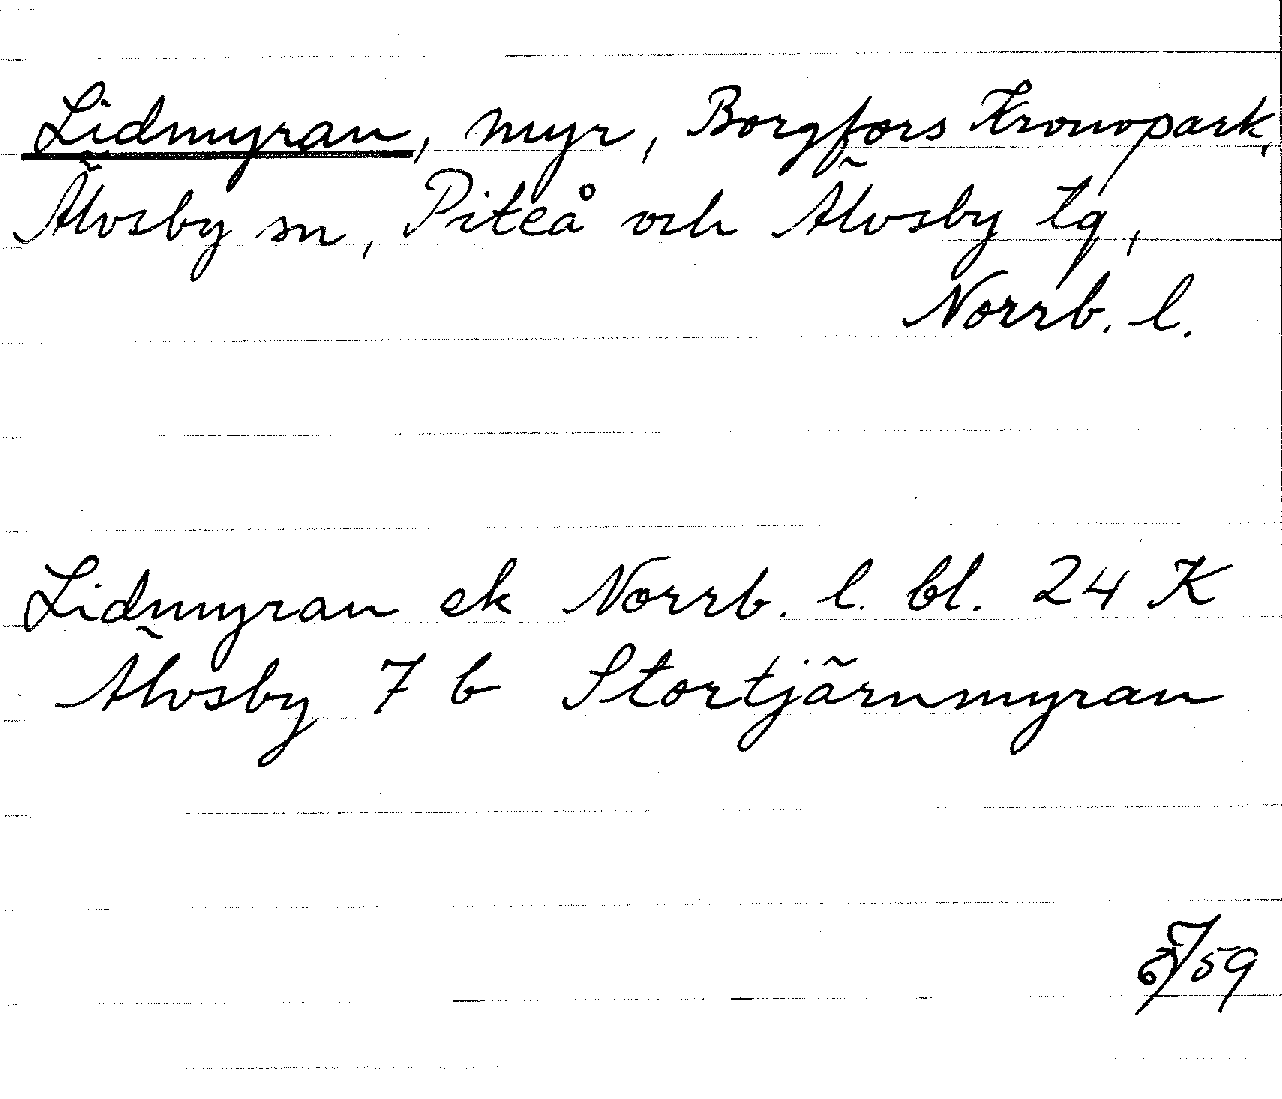 Lidmyran, myr, Borgfors Kronopark,
Älvsby sn, Piteå och Älvsby tg,
Norrb. l.
Lidmyran ek Norrb. l. bl. 24 K
Älvsby 7 b Stortjärnmyran
59